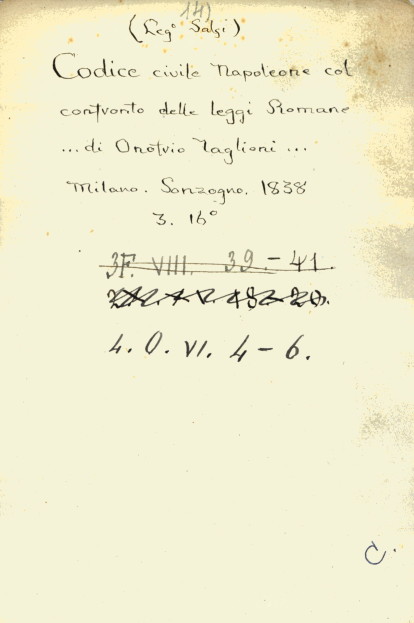 14)
(Leg° Salsi)
Codice civile Napoleone col
confronto delle leggi Romane
... di Onofrio Taglioni ...
Milano. Sonzogno. 1838
3. 16°
3F. VIII. 39 - 41.
4. O. VI. 4 - 6.
C.